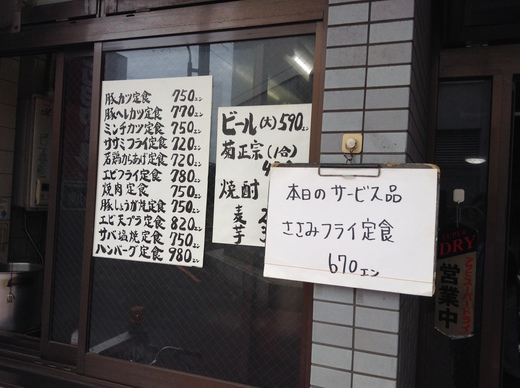 豚カツ定食 750エン
豚ヘレカツ定食 770エン
ミンチカツ定食 750エン
ササミフライ定食 720エン
若鶏からあげ定食 720エン
エビフライ定食 780エン
焼肉定食 750エン
豚しょうが焼定食 750エン
エビ天プラ定食 820エン
サバ塩焼定食 750エン
ハンバーグ定食 980エン
ビール(大)590エン
菊正宗(1合)
焼酎
麦
芋
本日のサービス品
ささみフライ定食
670エン
DRY
アサヒスーパードライ
営業中